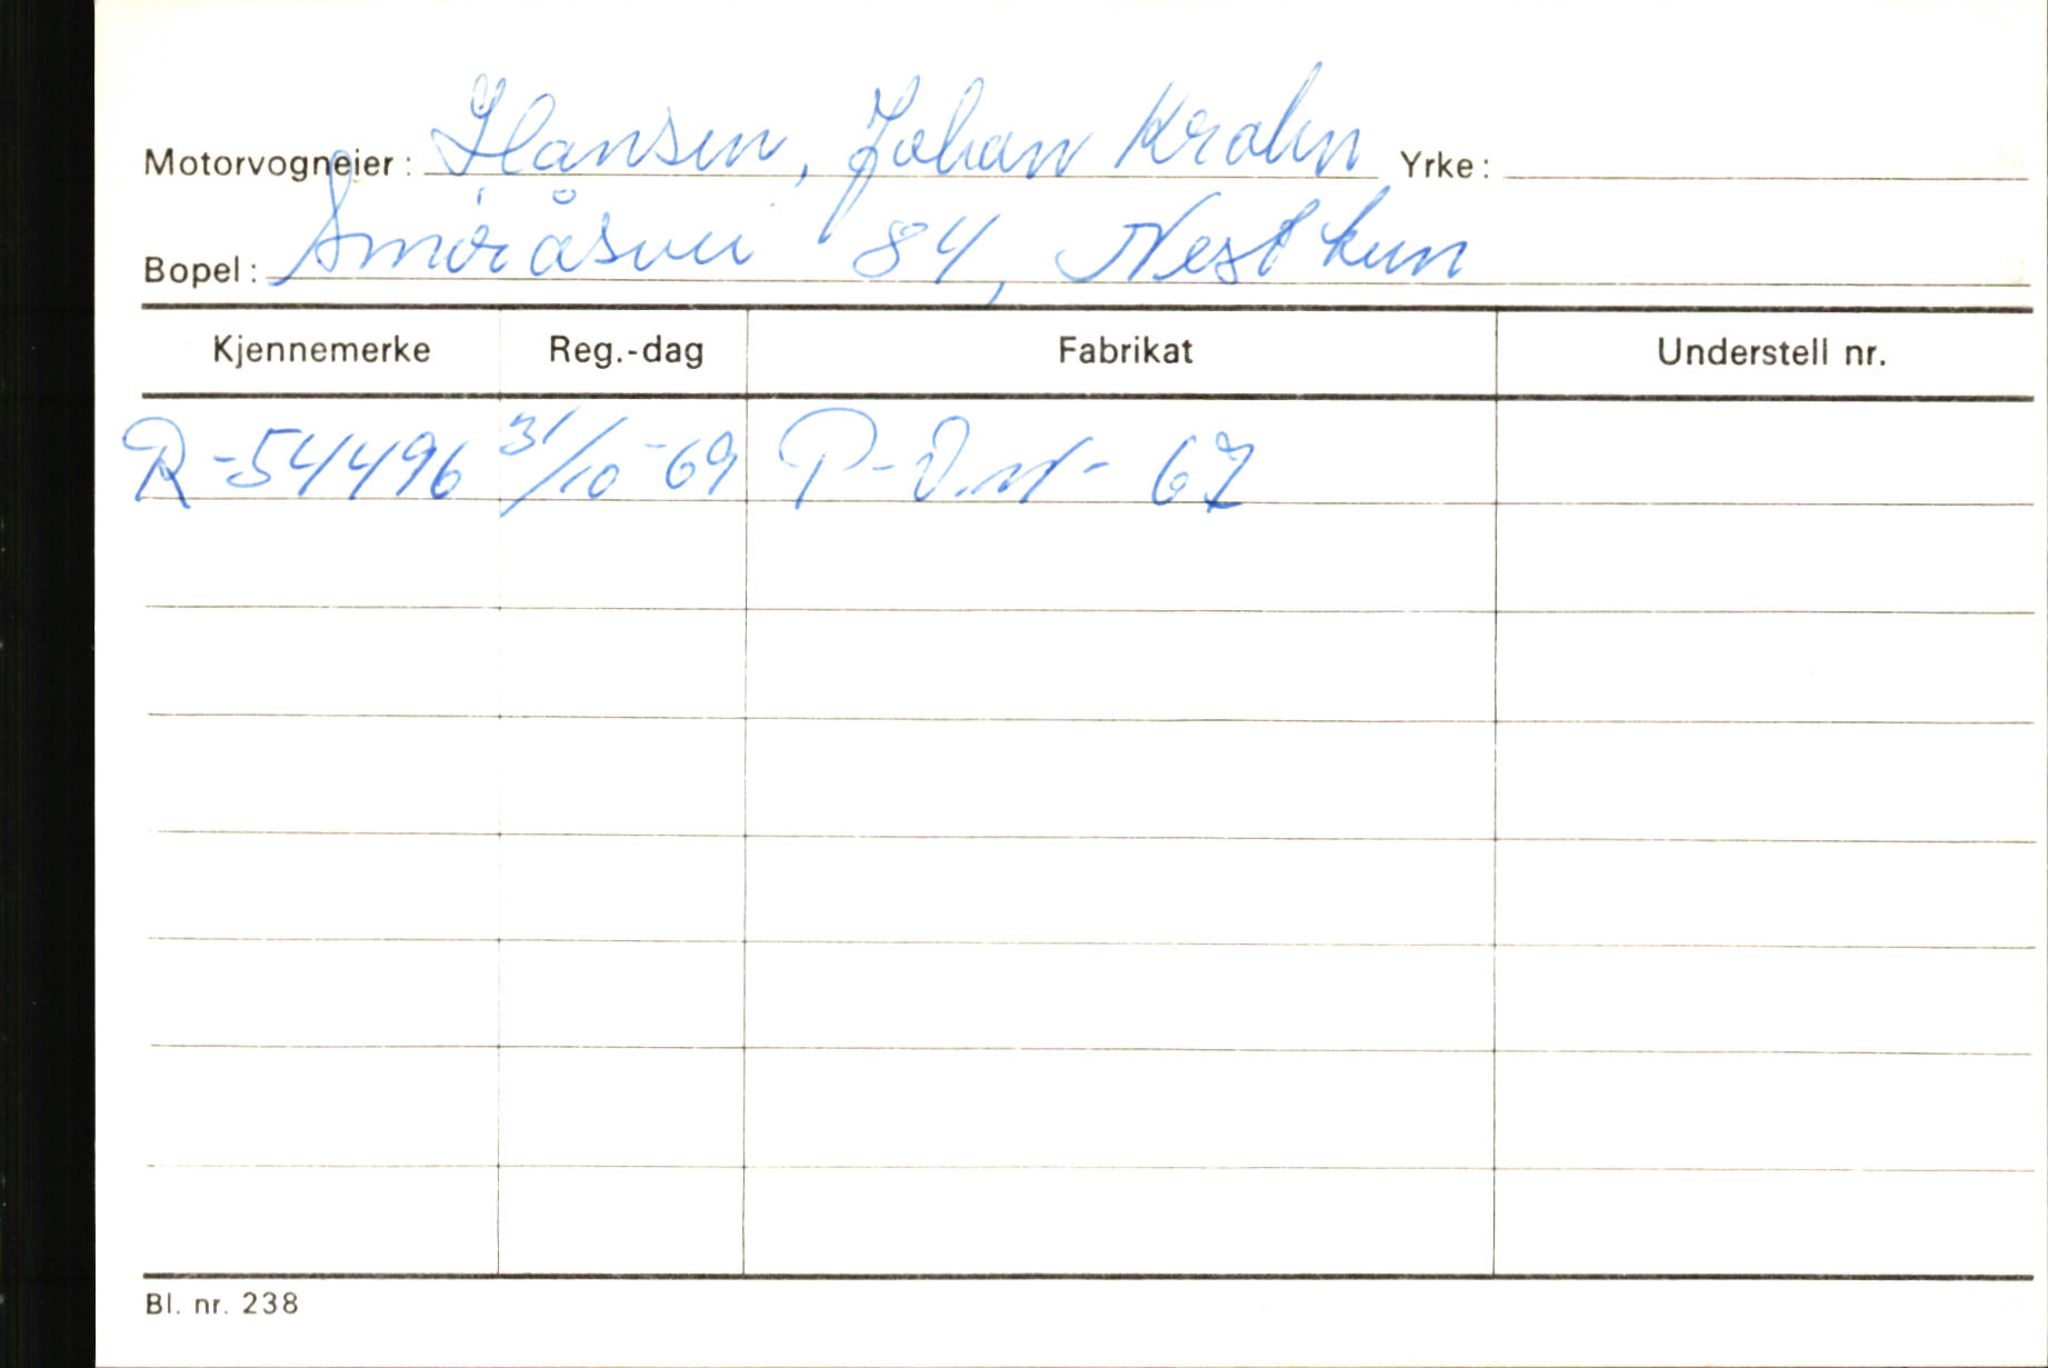 Motorvogneier: Hansen, Johan Krohn Yrke:
Bopel: Smøråsvei 84, Nesttun
Kjennemerke Reg.-dag Fabrikat Understell nr.
R-54496 31/10-69 P- - 67
Bl. nr. 238